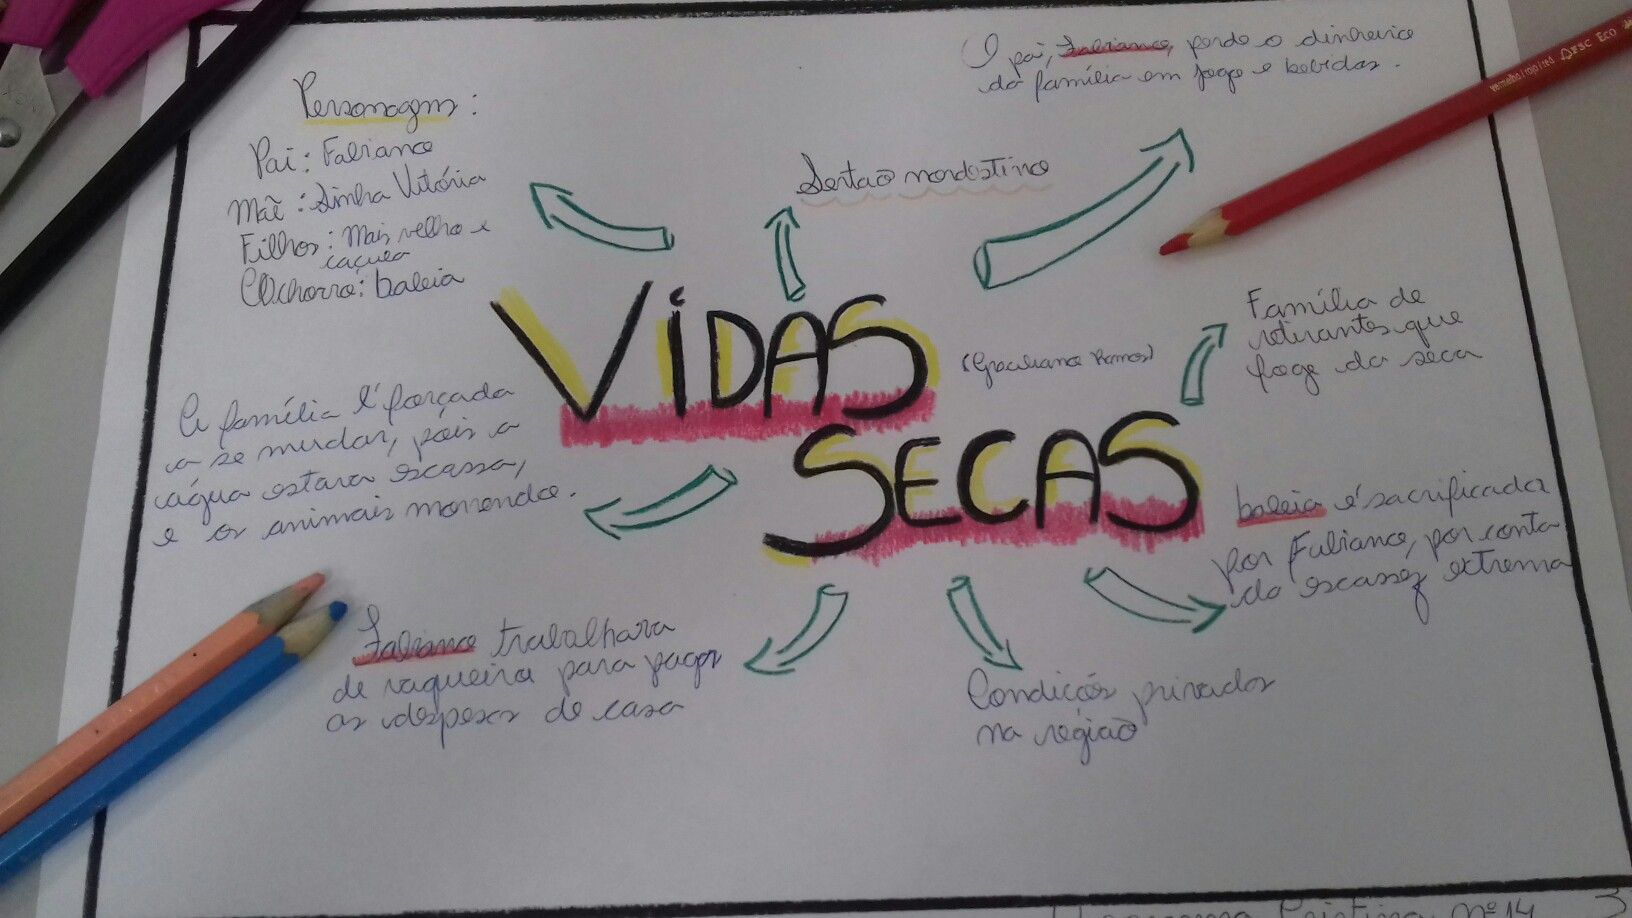 Personagens:
Pai: Fabiano
Mãe: Sinha Vitória
Filhos: Mais velho e
caçula
Cachorro: baleia
Sertão nordestino
O pai, Fabiano, perde o dinheiro
da família em jogo e bebidas.
vermelho|rojo|red DESC ECO
VIDAS
SECAS
(Graciliano Ramos)
Família de
retirantes que
foge da seca
A família é forçada
a se mudar, pois a
água estava escassa,
e os animais morrendo.
baleia é sacrificada
por Fabiano, por conta
da escassez extrema
Fabiano trabalhava
de vaqueiro para pagar
as despesas de casa
Condições privadas
na região
Cristina Nº 14